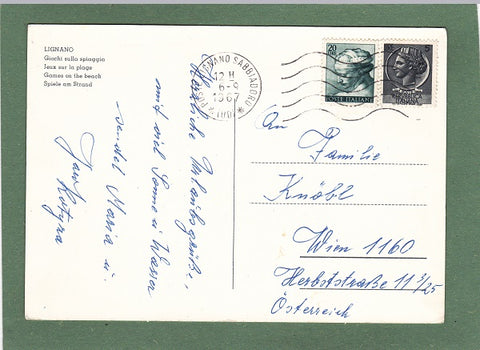 LIGNANO
Giochi sulla spiaggia
Jeux sur la plage
Games on the beach
Spiele am Strand
LIGNANO SABBIADORO
12 H
6-9
1967
20
POSTE ITALIANE
5
Herzliche Urlaubsgrüße,
mit viel Sonne u. Wasser
sendet Maria u.
An
Familie
Knöbl
Wien 1160
Herbststraße 11 3/25
Österreich